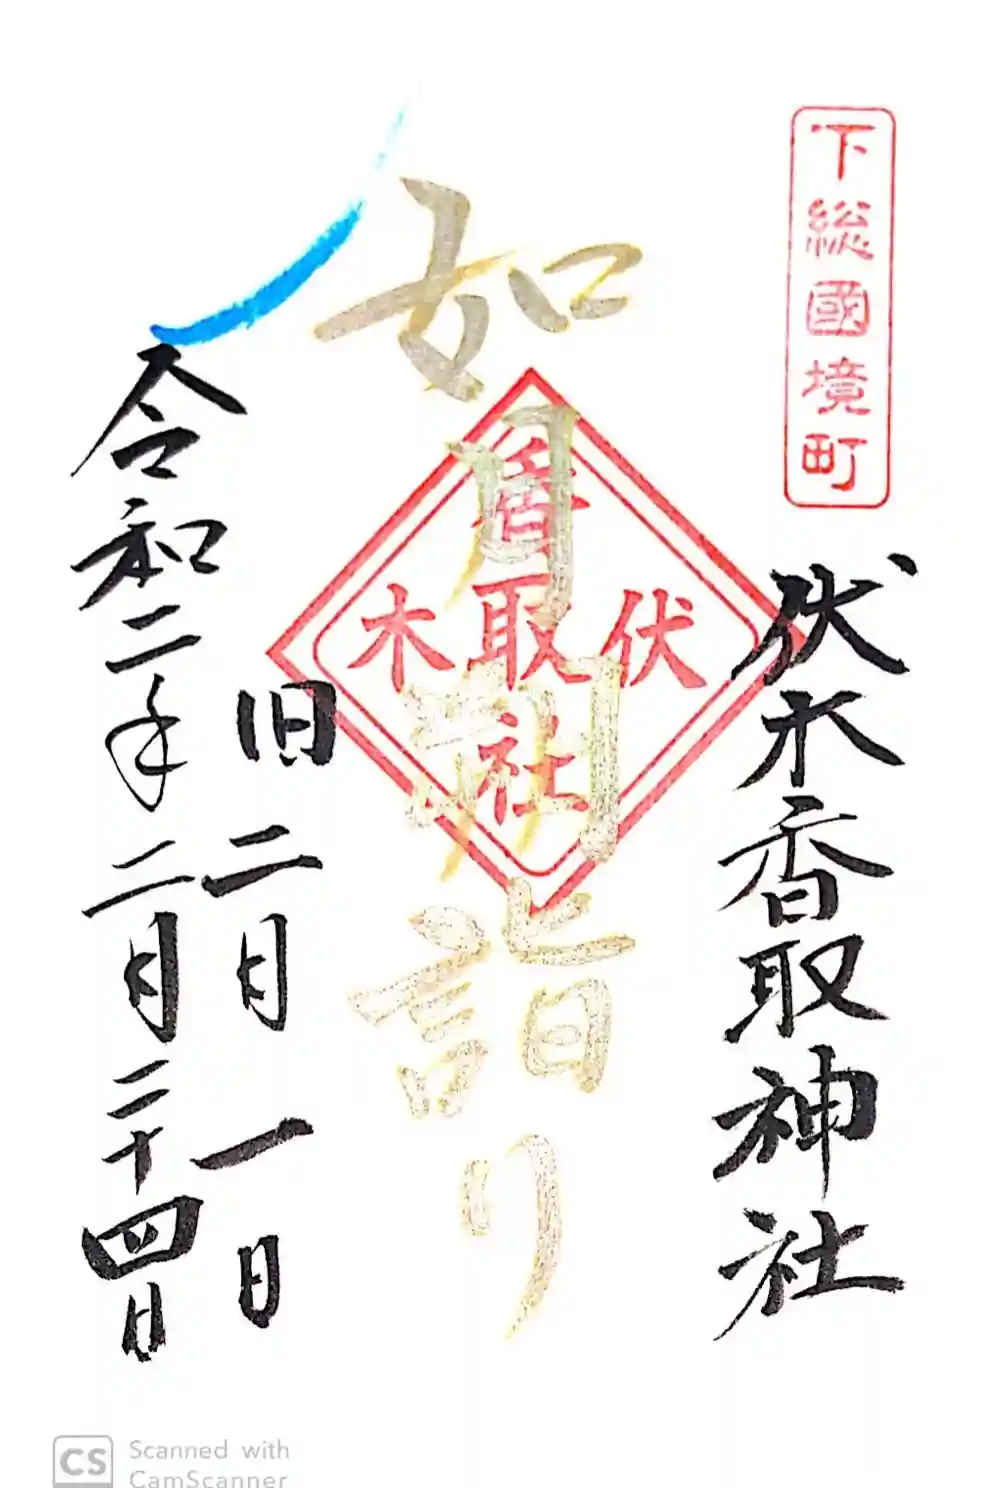 下総國境町
伏木香取神社
如月朔詣り
香取社
伏木
旧二月一日
令和二年二月二十四日
CS Scanned with
CamScanner